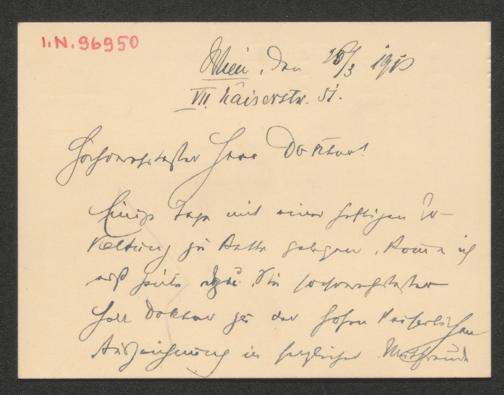 I.N. 96950
Wien, den 28/3 1910
VII. Kaiserstr. 51.
Hochverehrtester Herr Doktor!
Einige Tage mit einer heftigen Er-
kältung zu Bette gelegen, komme ich
erst heute dazu Sie hochverehrtester
Herr Doktor zu der hohen kaiserlichen
Auszeichnung in herzlicher Mitfreude